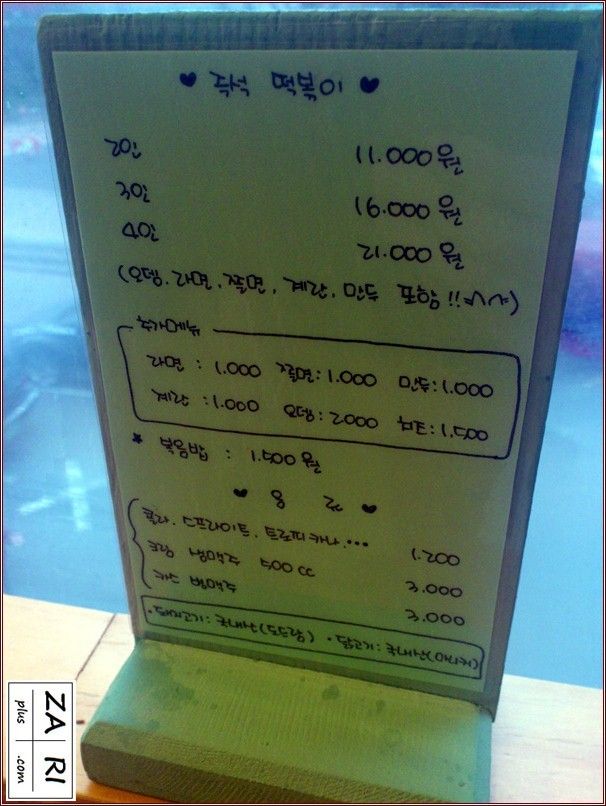 ♥ 즉석 떡볶이 ♥
2인 11.000원
3인 16.000원
4인 21.000원
(오뎅.라면.쫄면.계란.만두 포함!!^^)
추가메뉴
라면 : 1.000 쫄면:1.000 만두:1.000
계란 :1.000 오뎅:2000 치즈:1.500
* 볶음밥 : 1.500원
♥ 음 료 ♥
콜라.스프라이트.트로피카나... 1.200
크림 생맥주 500cc 3.000
카스 병맥주 3.000
·돼지고기:국내산(도드람) ·닭고기:국내산(마니커)
ZARI
plus .com